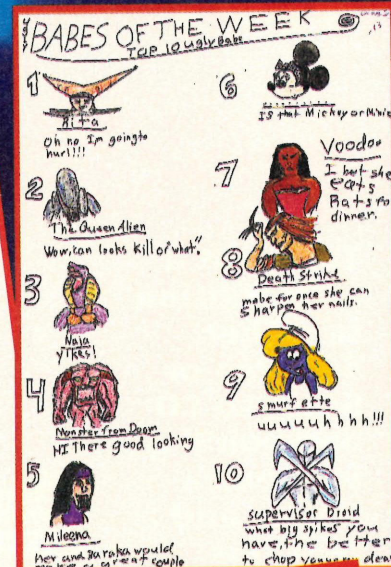 UGLY
BABES OF THE WEEK
TOP 10 Ugly Babe
1
Rita
Oh no Im going to
hurl!!!
2
The Queen Alien
Wow, can looks kill or what".
3
Naja
yikes!
4
Monster From Doom
HI There good looking
5
Mileena
her and Baraka would
great couple
6
IS that Mickey or Minie
7
Voodoo
I bet she
eats
Rats for
dinner.
8
Death Strike
mabe for once she can
sharpen her nails.
9
smurfette
uuuuuhhhh!!!
10
Supervisor Droid
what big spikes you
have, the better
to chop you my dear